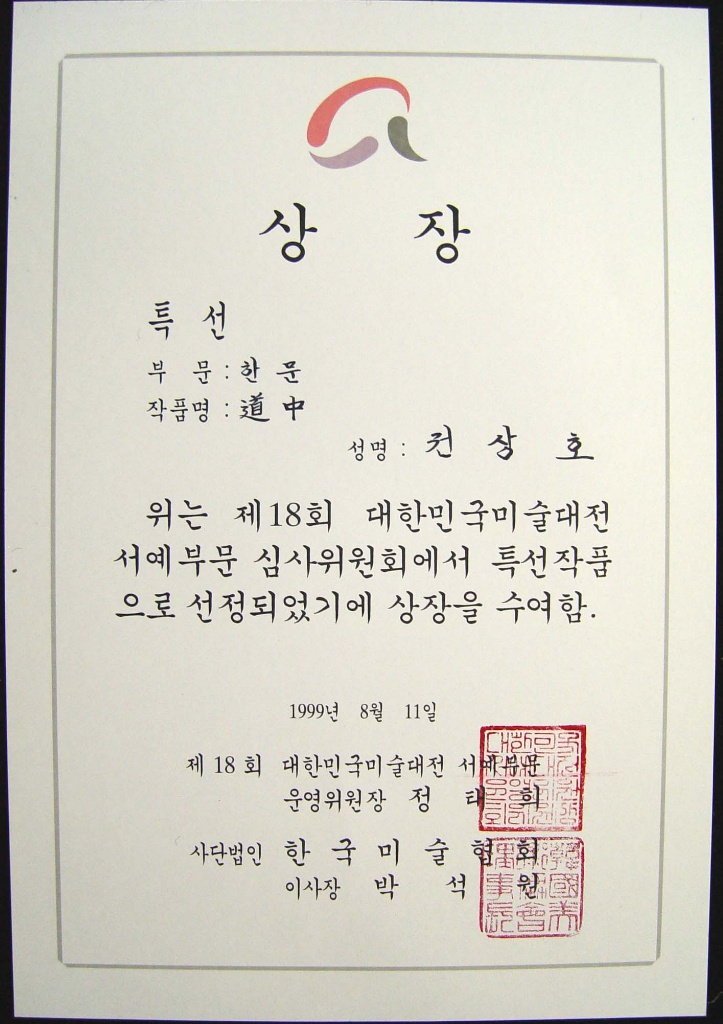 상 장
특 선
부 문 : 한 문
작품명 : 道 中
성명 : 권 상 호
위는 제18회 대한민국미술대전
서예부문 심사위원회에서 특선작품
으로 선정되었기에 상장을 수여함.
1999년 8월 11일
제 18 회 대한민국미술대전 서예부문
운영위원장 정 태 희
사단법인 한 국 미 술 협 회
이사장 박 석 원